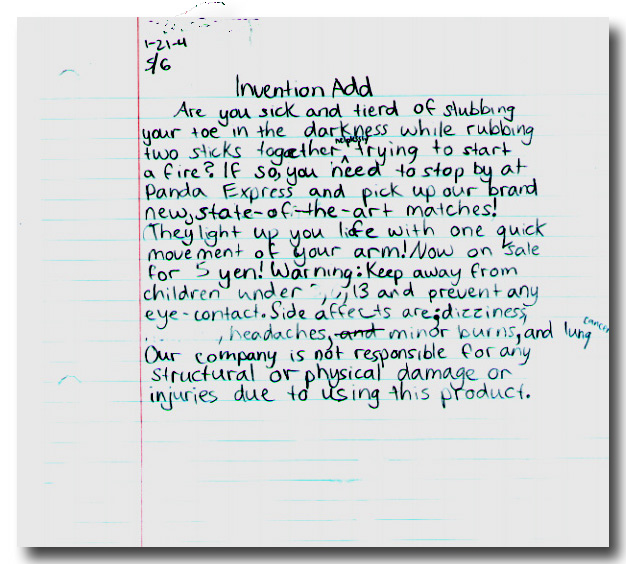 1-21-4
5/6
Invention Add
Are you sick and tierd of slubbing
your toe in the darkness while rubbing
two sticks together helplessly trying to start
a fire? If so, you need to stop by at
Panda Express and pick up our brand
new, state-of-the-art matches!
They light up you life with one quick
movement of your arm! Now on sale
for 5 yen! Warning: Keep away from
children under 13 and prevent any
eye-contact. Side affects are: dizziness,
, headaches, and minor burns, and lung cancer
Our company is not responsible for any
structural or physical damage or
injuries due to using this product.